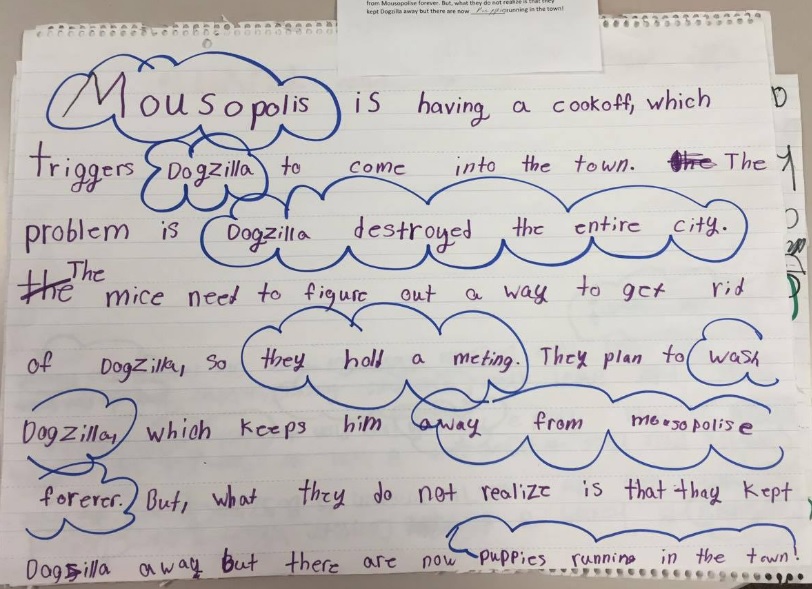 from Mousopolise forever. But, what they do not realize is that they
kept Dogzilla away but there are now running in the town!
Mousopolis is having a cookoff, which
triggers Dogzilla to come into the town. the The
problem is Dogzilla destroyed the entire city.
the The mice need to figure out a way to get rid
of Dogzilla, so they hold a meting. They plan to wash
Dogzilla, which keeps him away from mousopolise
forever. But, what they do not realize is that thay kept
Dogsilla away but there are now puppies running in the town!